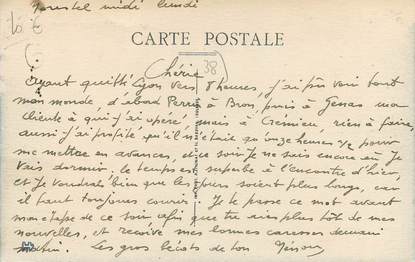 Morestel midi lundi
10 €
CARTE POSTALE
38
Chérie
Ayant quitté Lyon vers 8 heures, j'ai pu voir tout
mon monde, d'abord Perrin à Bron, puis à Genas ma
cliente à qui j'ai opéré, mais à Crémieu, rien à faire,
aussi j'ai profité qu'il n'était qu'onze heures ½ pour
me mettre en avances, et ce soir je ne sais encore où je
vais dormir. Le temps est superbe à l'encontre d'hier,
et je voudrais bien que les jours soient plus longs, car
il faut toujours courir. Je te prose ce mot avant
mon étape de ce soir afin que tu aies plus tôt de mes
nouvelles, et reçoive mes bonnes caresses demain
matin. Les gros bécots de ton